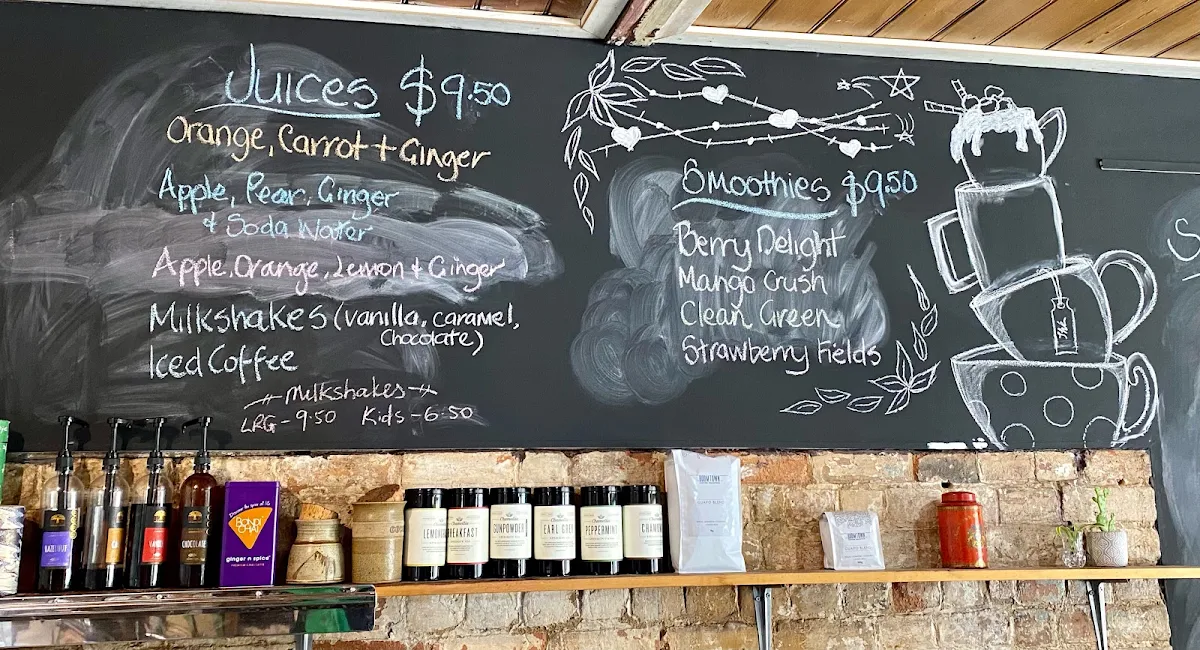 Juices $9.50
Orange, Carrot + Ginger
Apple, Pear, Ginger
& Soda Water
Apple, Orange, Lemon & Ginger
Milkshakes (vanilla, caramel,
Chocolate)
Iced Coffee
Milkshakes
LRG - 9.50 Kids - 6.50
Smoothies $9.50
Berry Delight
Mango Crush
Clean Green
Strawberry Fields
Tea
S
HAZELNUT
VANILLA
CHOCOLATE
BONDI
CHAI
ginger n spice
LEMON
BREAKFAST
GUNPOWDER
EARL GREY
PEPPERMINT
CHAMOMILE